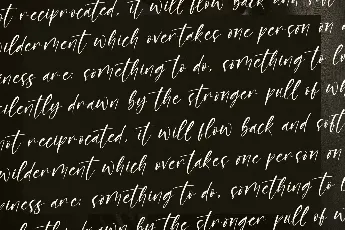 not reciprocated, it will flow back and
wilderment which overtakes one person on
iness are: something to do, something to
silently drawn by the stronger pull of
not reciprocated, it will flow back and soft
wilderment which overtakes one person on
piness are: something to do, something to
drawn by the stronger pull of